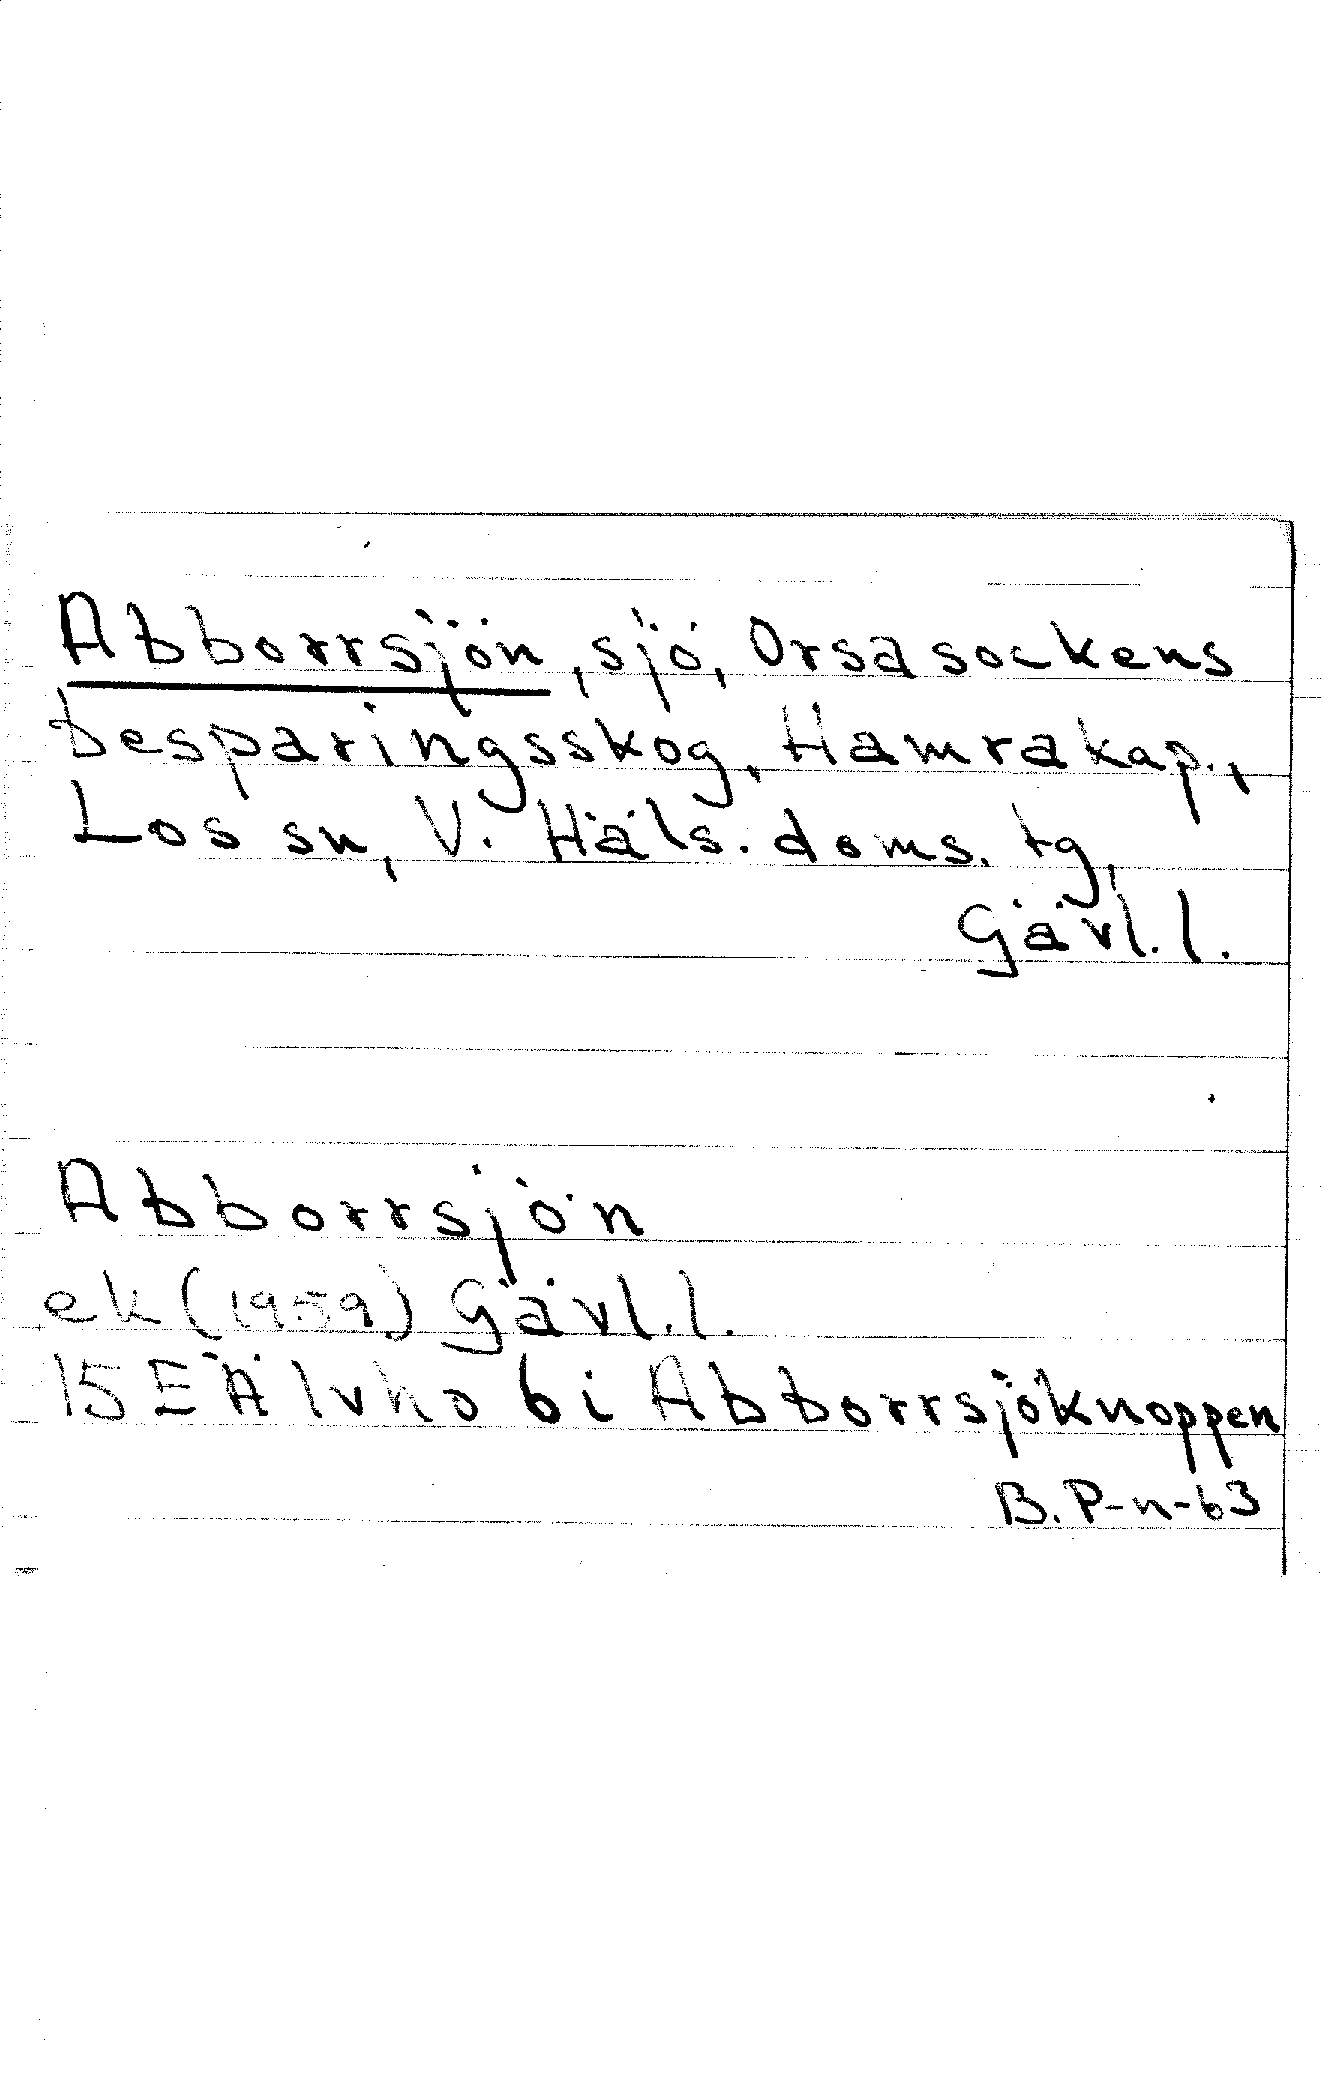 Abborrsjön, sjö, Orsa sockens
besparingsskog, Hamra kap.,
Los sn, V. Häls. doms. tg,
Gävl. l.
Abborrsjön
ek (1959) Gävl. l.
15 E Älvho bi Abborrsjöknoppen
B. P-n-63